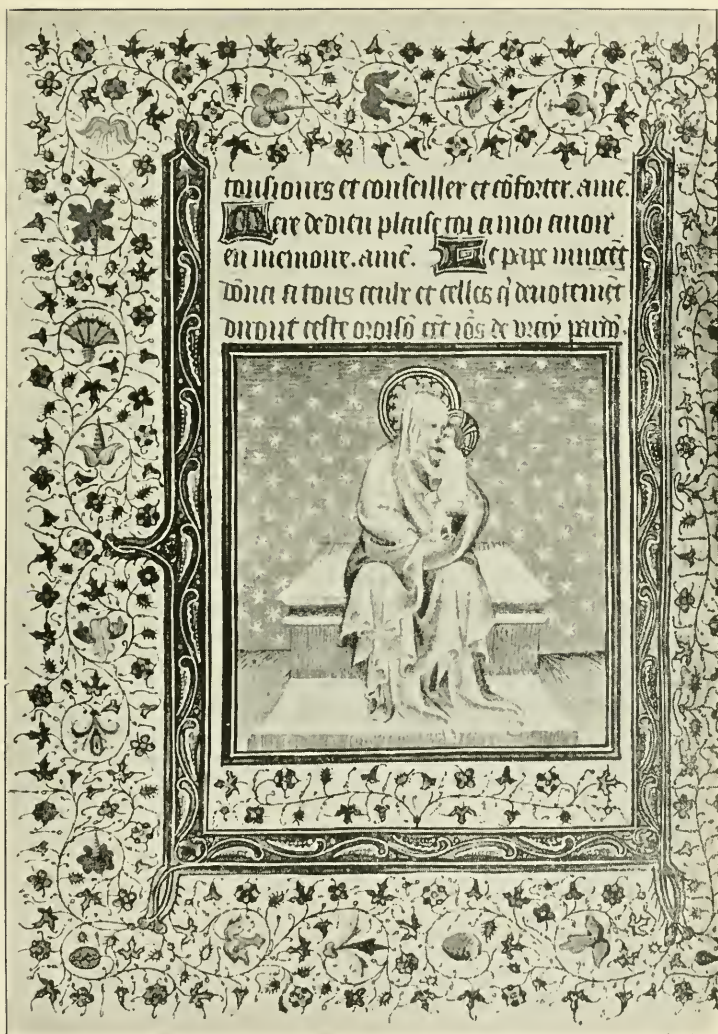 tousiours et conseiller et cōforter. amē.
Mere de dieu plaise toi a moi auoir
en memoire. amē. Le pape innocēt
dōna a tous ceulx et celles q̄ deuotemēt
diront ceste oroisō